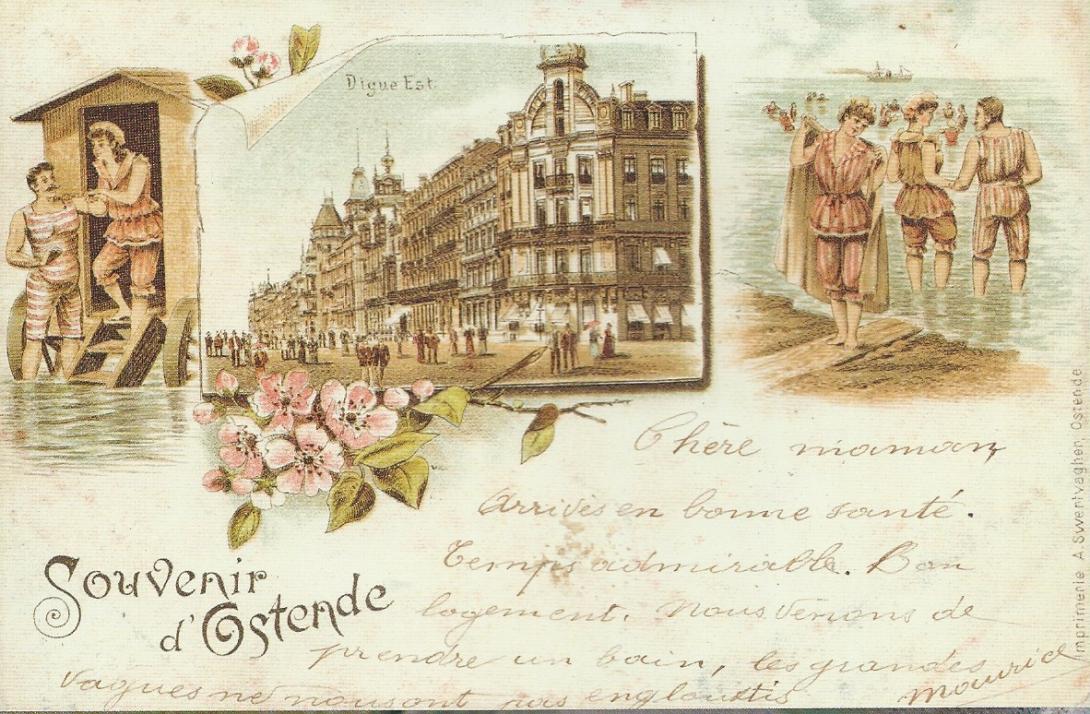 Digue Est.
Chère maman
Arrivés en bonne santé.
Temps admirable. Bon
logement. Nous venons de
prendre un bain, les grandes
vagues ne nous ont pas engloutis
Maurice
Souvenir
d'Ostende
Imprimerie A. Swentvaghen Ostende